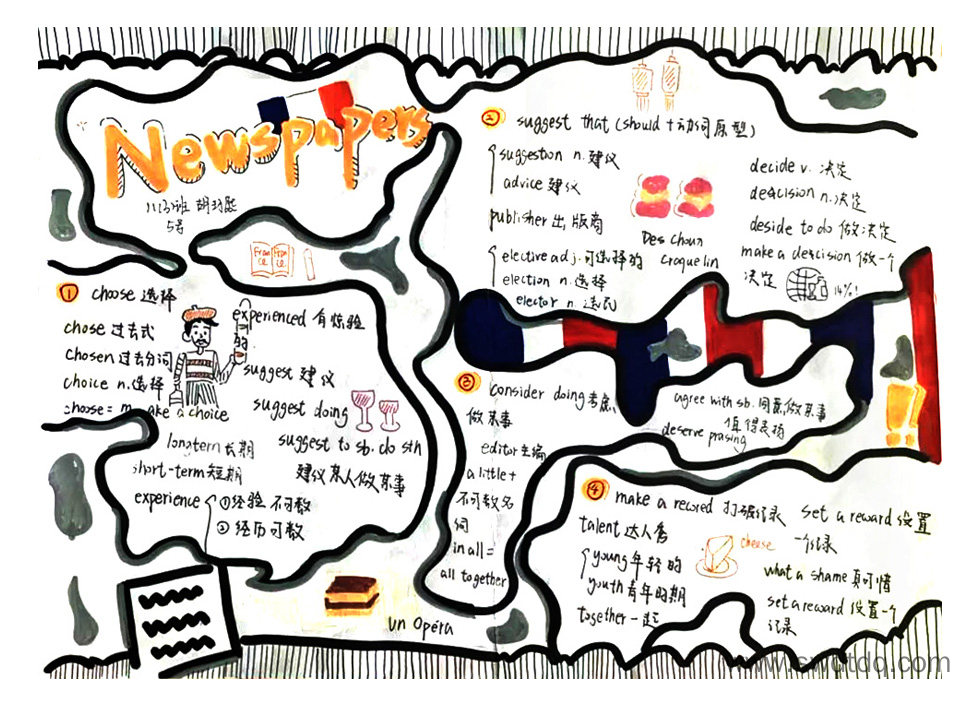 Newspapers
5号
France
① choose 选择
chose 过去式
Chosen 过去分词
choice n.选择
choose = make a choice
experienced 有经验的
suggest 建议
suggest doing
suggest to sb. do sth
建议某人做某事
longtern 长期
short-term 短期
experience ①经验 不可数
② 经历可数
un Opéra
② suggest that (should +动词原型)
suggestion n.建议
advice 建议
publisher 出版商
elective adj.可选择的
election n.选择
elector n.选民
Des Choun
Croquelin
decide v. 决定
deācision n.决定
deside to do 做决定
make a deścision 做一个
决定
14%!
③ consider doing 考虑
做某事
editor 主编
a little +
不可数名
词
in all =
all together
agree with sb. 同意做某事
值得表扬
deserve prasing
④ make a record 打破记录
talent 达人秀
young 年轻的
youth 青年时期
together 一起
cheese
set a reward 设置
一个记录
what a shame 真可惜
set a reward 设置一个
记录
www.swptdq.com